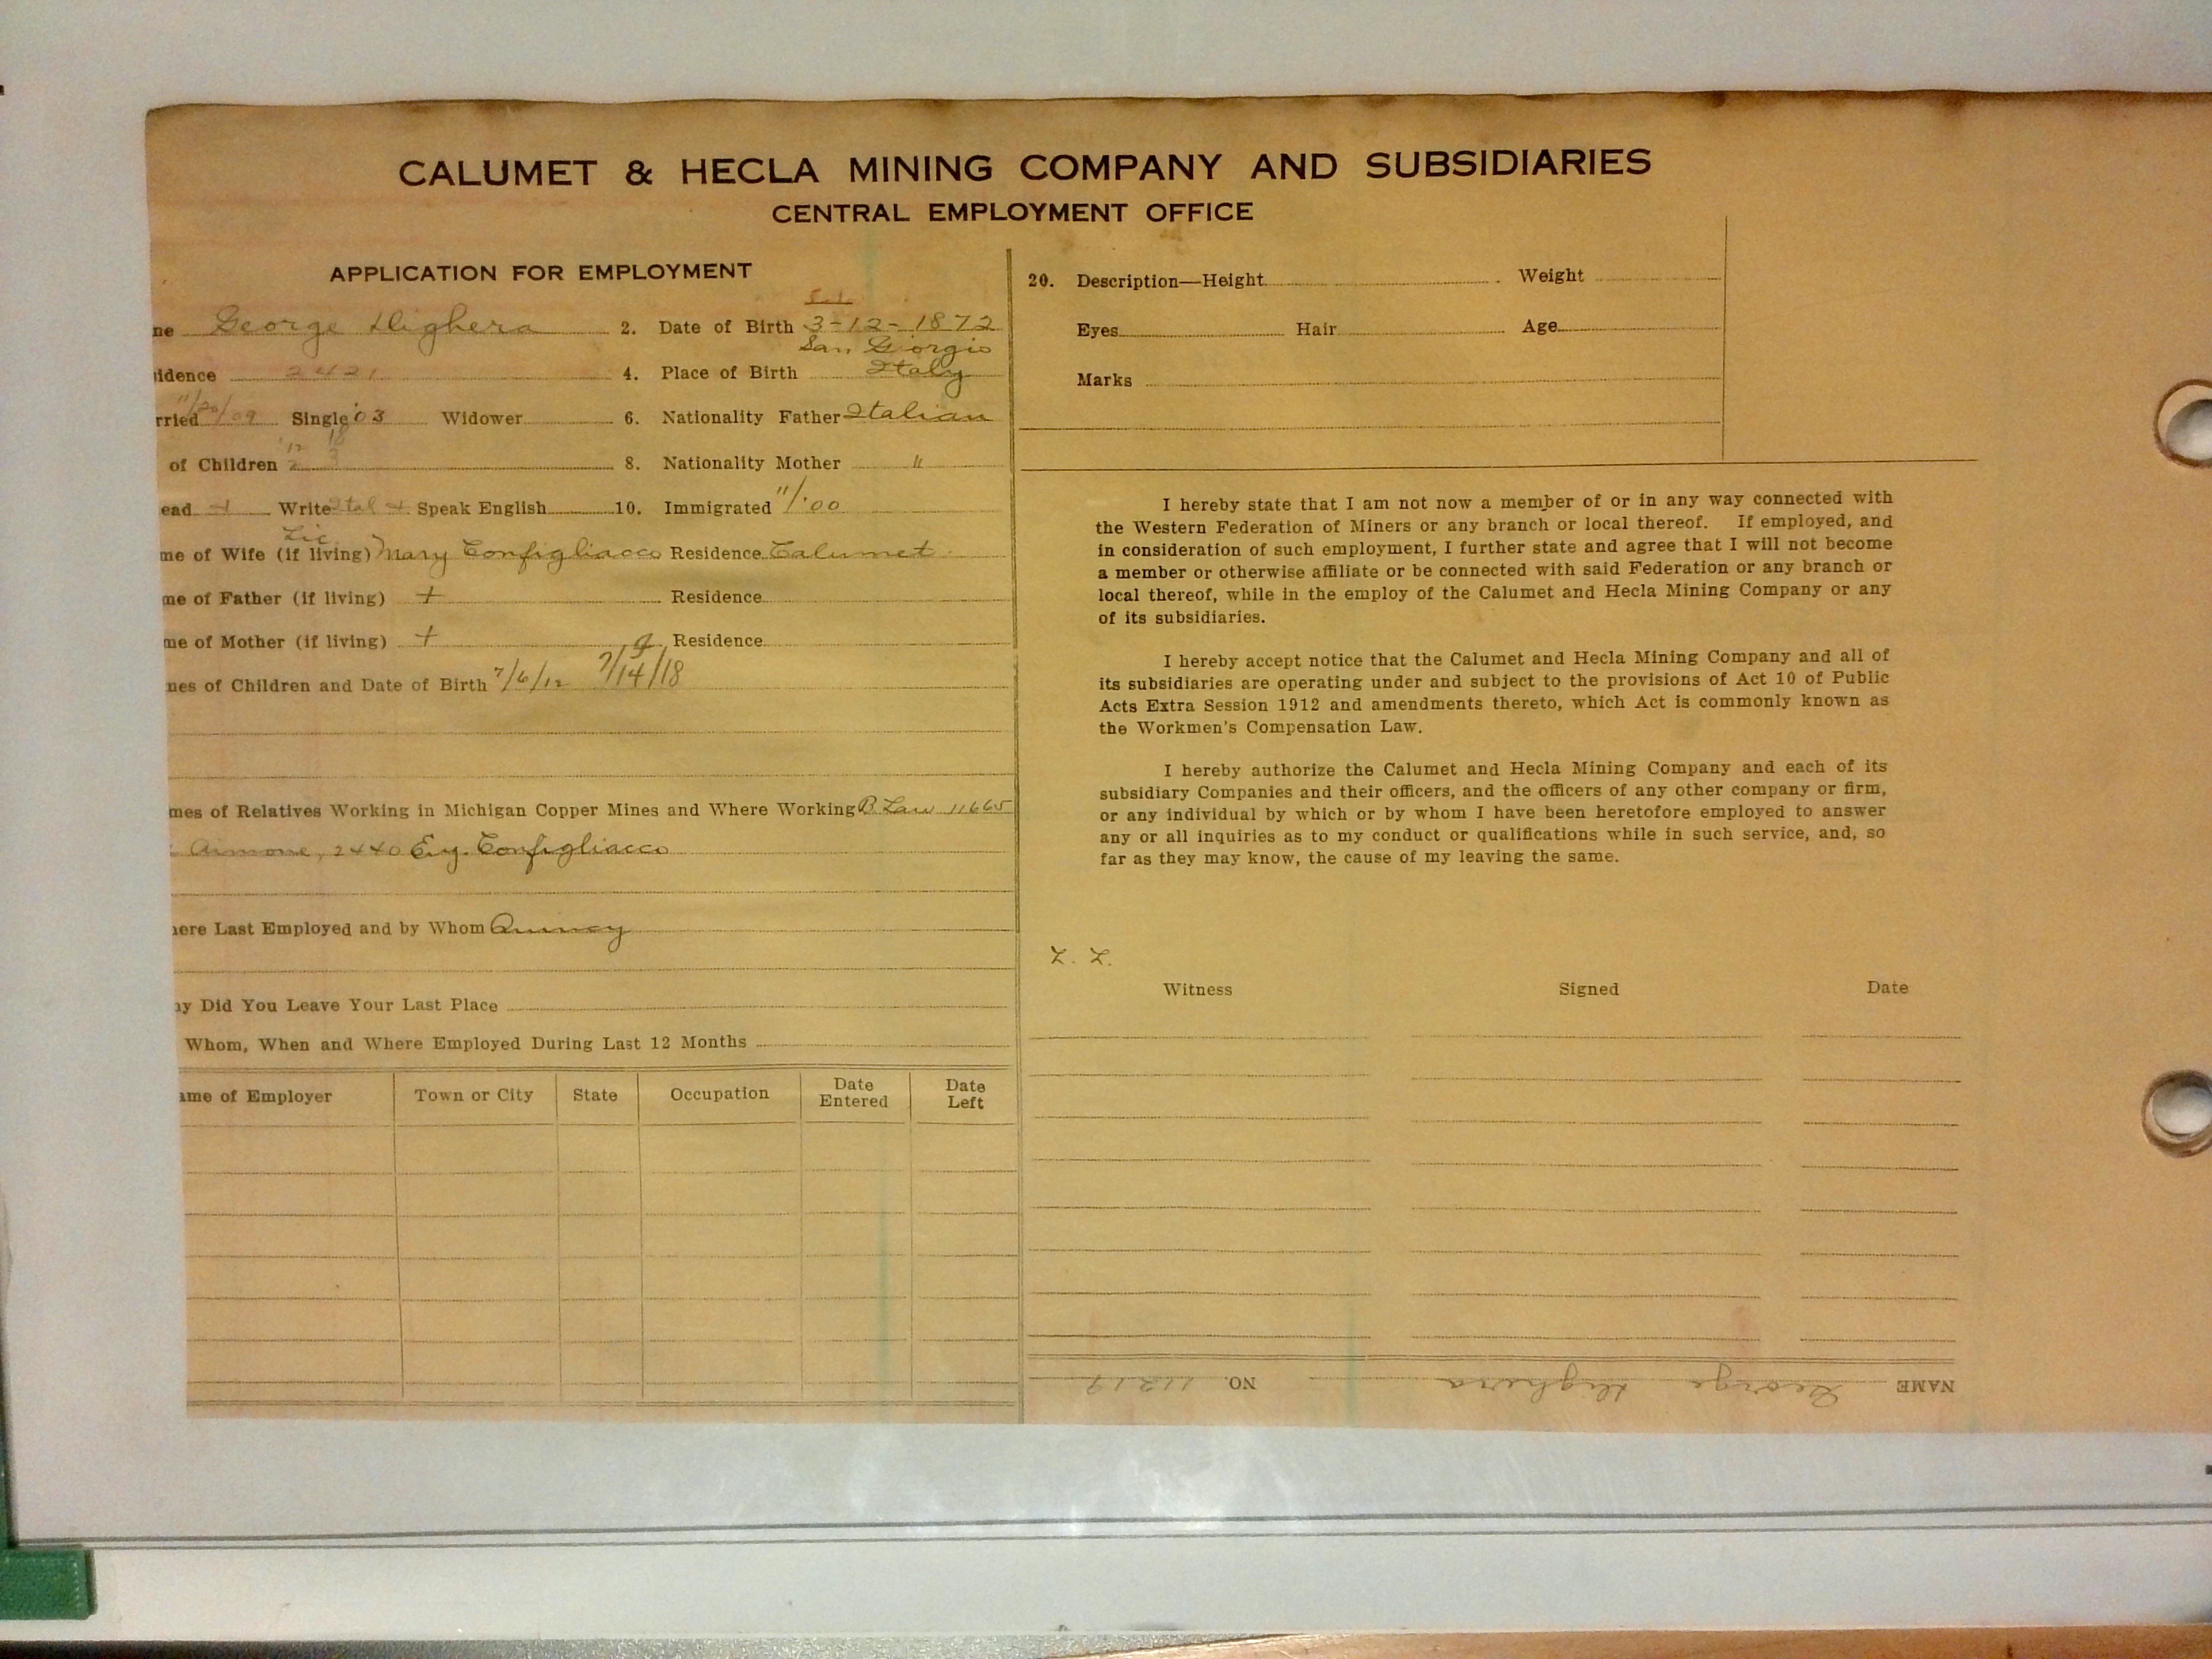 CALUMET & HECLA MINING COMPANY AND SUBSIDIARIES
CENTRAL EMPLOYMENT OFFICE
APPLICATION FOR EMPLOYMENT
me George Dighera 2. Date of Birth 3-12-1872
San Giorgio
idence 2421 4. Place of Birth Italy
rried 11/20/09 Single '03 Widower 6. Nationality Father Italian
'12 18
of Children 2 3 8. Nationality Mother "
ead + Write Ital + Speak English 10. Immigrated 11/'00
Lic
me of Wife (if living) Mary Configliacco Residence Calumet
me of Father (if living) + Residence
me of Mother (if living) + Residence
g
mes of Children and Date of Birth 7/6/12 7/14/18
mes of Relatives Working in Michigan Copper Mines and Where Working B. Law 11665
Aimone, 2440 Eug. Configliacco
here Last Employed and by Whom Quincy
hy Did You Leave Your Last Place
Whom, When and Where Employed During Last 12 Months
ame of Employer Town or City State Occupation Date Entered Date Left
20. Description—Height Weight
Eyes Hair Age
Marks
I hereby state that I am not now a member of or in any way connected with
the Western Federation of Miners or any branch or local thereof. If employed, and
in consideration of such employment, I further state and agree that I will not become
a member or otherwise affiliate or be connected with said Federation or any branch or
local thereof, while in the employ of the Calumet and Hecla Mining Company or any
of its subsidiaries.
I hereby accept notice that the Calumet and Hecla Mining Company and all of
its subsidiaries are operating under and subject to the provisions of Act 10 of Public
Acts Extra Session 1912 and amendments thereto, which Act is commonly known as
the Workmen's Compensation Law.
I hereby authorize the Calumet and Hecla Mining Company and each of its
subsidiary Companies and their officers, and the officers of any other company or firm,
or any individual by which or by whom I have been heretofore employed to answer
any or all inquiries as to my conduct or qualifications while in such service, and, so
far as they may know, the cause of my leaving the same.
Z. Z.
Witness Signed Date
NAME George Dighera NO. 11219